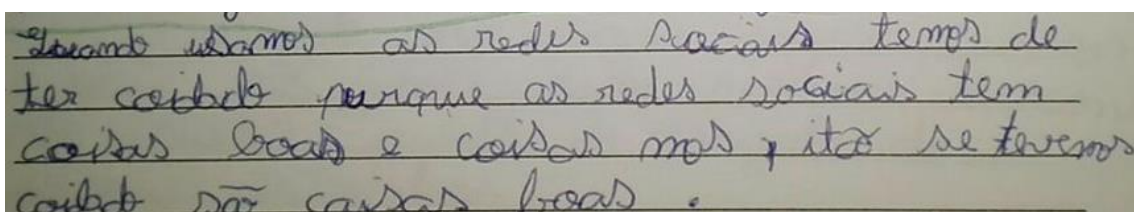 Quando usamos as redes sociais temos de
ter coidado purque as redes sociais tem
coisas boas e coisas mos, itão se tevemos
coidado são caisas boas.